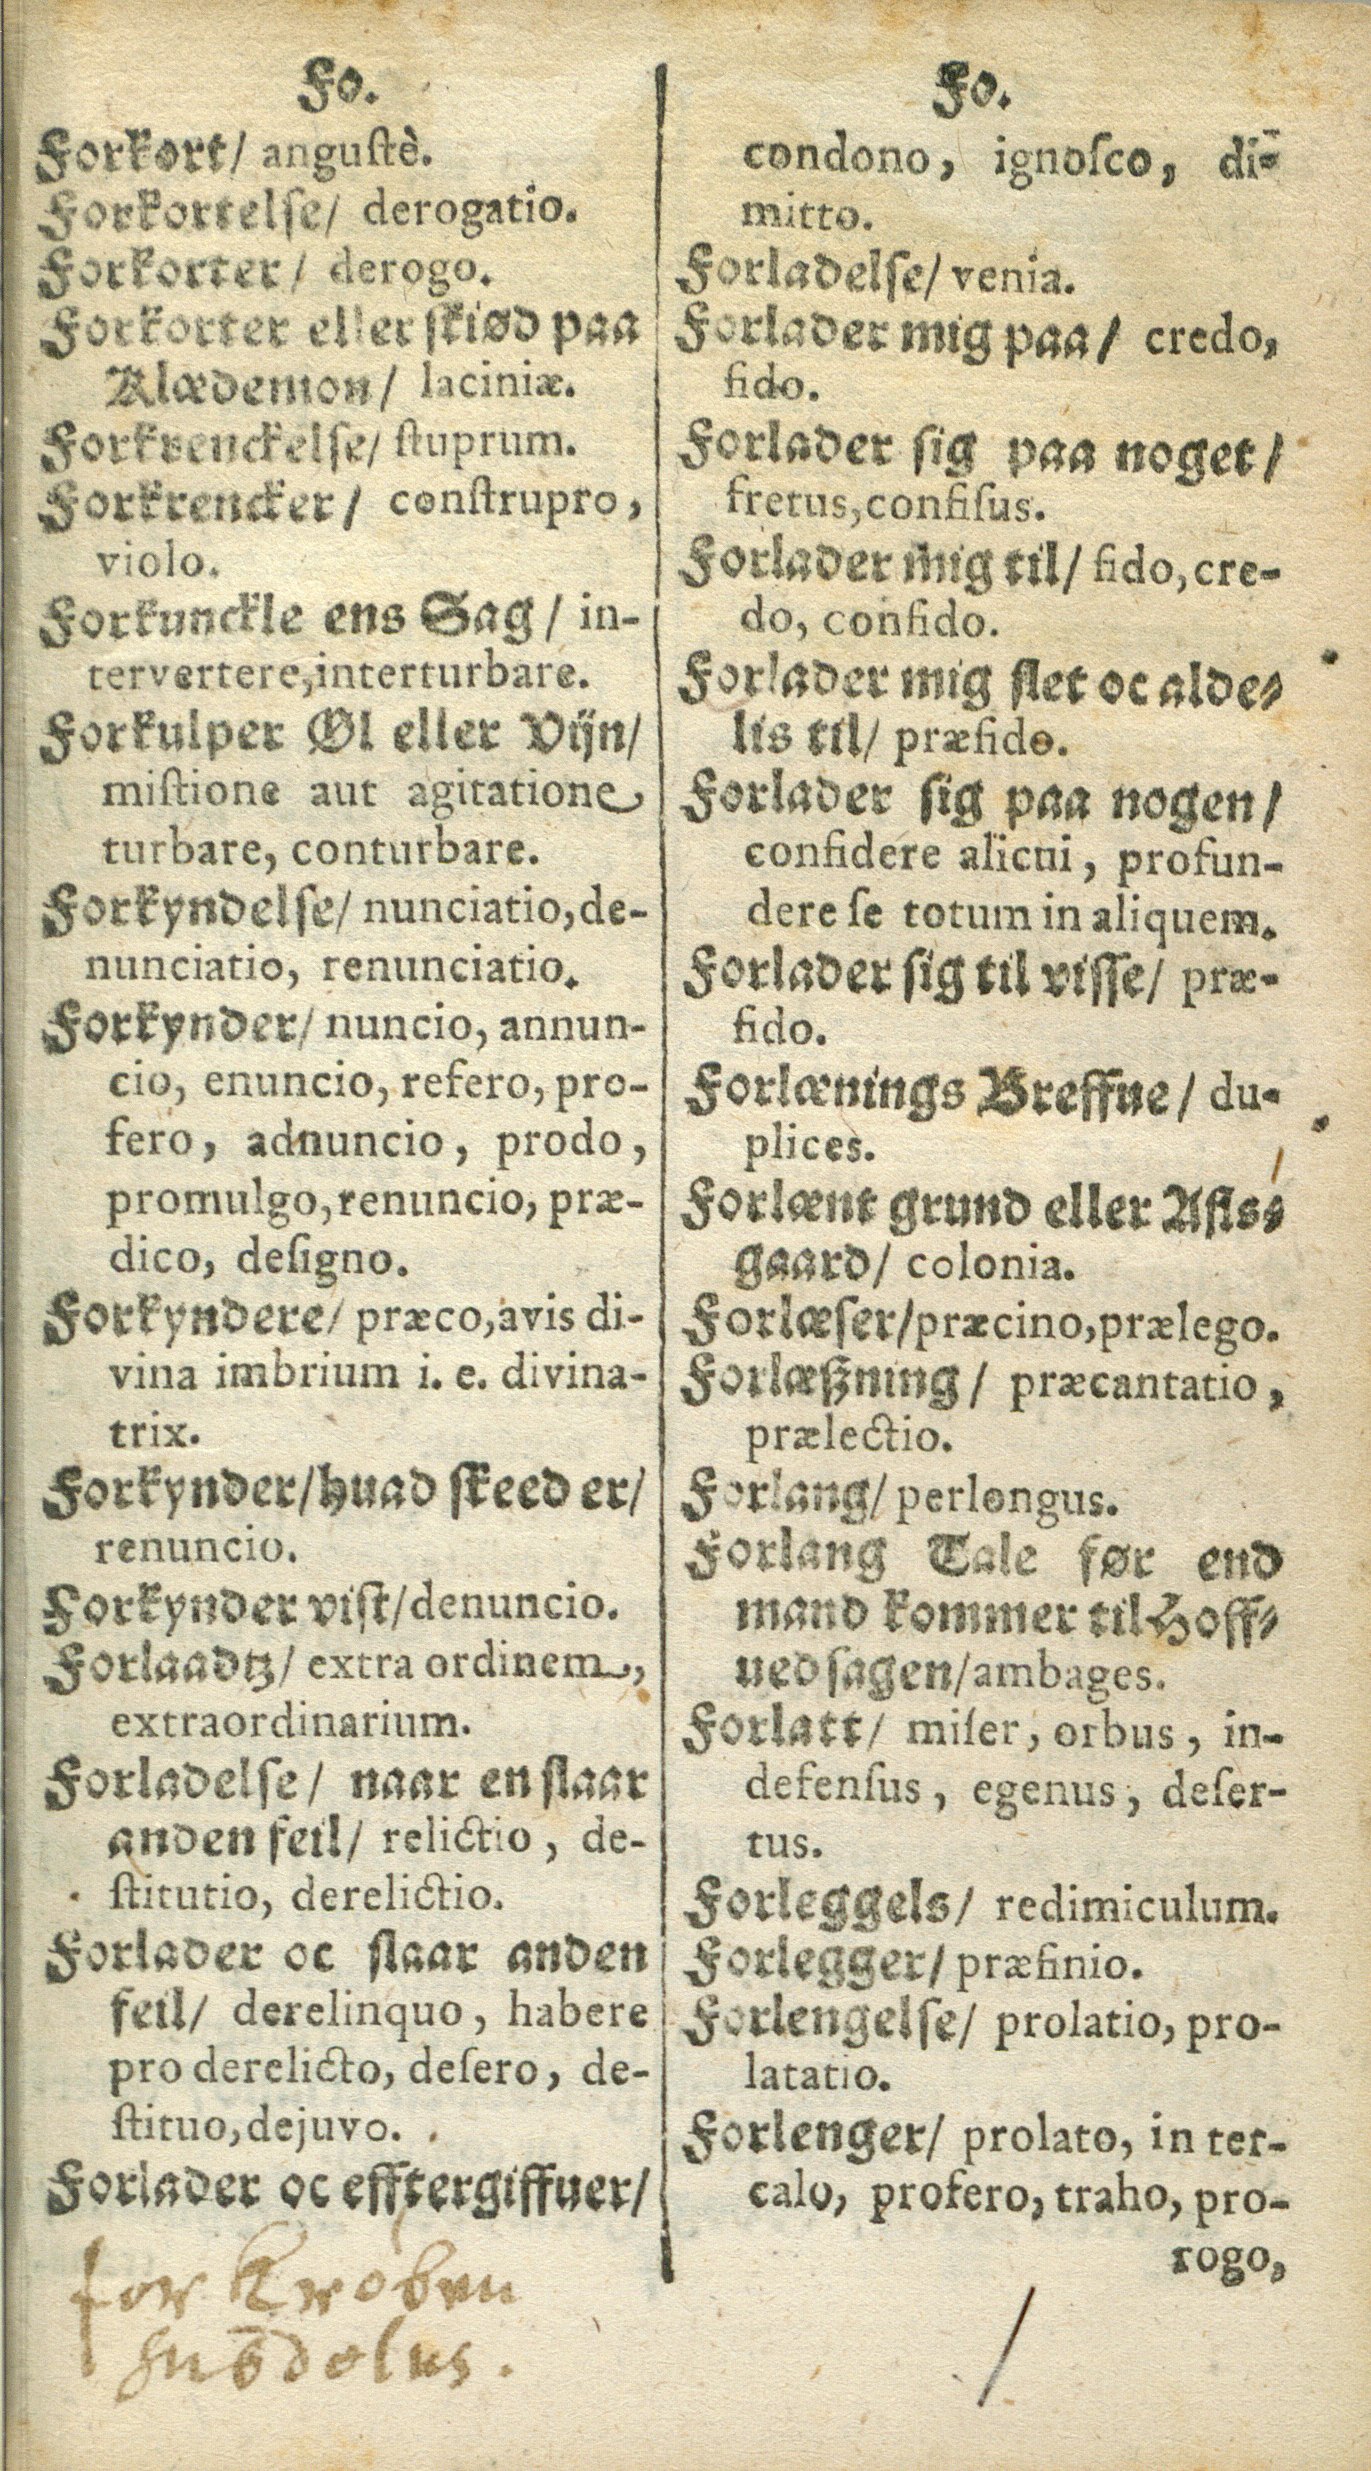 Fo.
Forkort/ anguſtè.
Forkortelſe/ derogatio.
Forkorter/ derogo.
Forkorter eller ſkiød paa
Klædemon/ laciniæ.
Forkrenckelſe/ ſtuprum.
Forkrencker/ conſtrupro,
violo.
Forkunckle ens Sag/ in-
tervertere,interturbare.
Forkulper Øl eller Vijn/
miſtione aut agitatione
turbare, conturbare.
Forkyndelſe/ nunciatio,de-
nunciatio, renunciatio.
Forkynder/ nuncio, annun-
cio, enuncio, refero, pro-
fero, adnuncio, prodo,
promulgo,renuncio, præ-
dico, deſigno.
Forkyndere/ præco,avis di-
vina imbrium i. e. divina-
trix.
Forkynder/huad ſkeed er/
renuncio.
Forkynder viſt/denuncio.
Forlaadtz/ extra ordinem,
extraordinarium.
Forladelſe/ naar en ſlaar
anden feil/ relictio, de-
ſtitutio, derelictio.
Forlader oc ſlaar anden
feil/ derelinquo, habere
pro derelicto, deſero, de-
ſtituo,dejuvo.
Forlader oc efftergiffuer/
for
ſubdolus.
Fo.
condono, ignoſco, di-
mitto.
Forladelſe/ venia.
Forlader mig paa/ credo,
fido.
Forlader ſig paa noget/
fretus,confiſus.
Forlader mig til/ fido,cre-
do, confido.
Forlader mig ſlet oc alde-
lis til/ præfido.
Forlader ſig paa nogen/
confidere alicui, profun-
dere ſe totum in aliquem.
Forlader ſig til viſſe/ præ-
fido.
Forlænings Breffue/ du-
plices.
Forlænt grund eller Afls-
gaard/ colonia.
Forlæſer/præcino,prælego.
Forlæſzning/ præcantatio,
prælectio.
Forlang/ perlongus.
Forlang Tale før end
mand kommer til Hoff-
uedſagen/ambages.
Forlatt/ miſer, orbus, in-
defenſus, egenus, deſer-
tus.
Forleggels/ redimiculum.
Forlegger/ præfinio.
Forlengelſe/ prolatio, pro-
latatio.
Forlenger/ prolato, in ter-
calo, profero, traho, pro-
rogo,